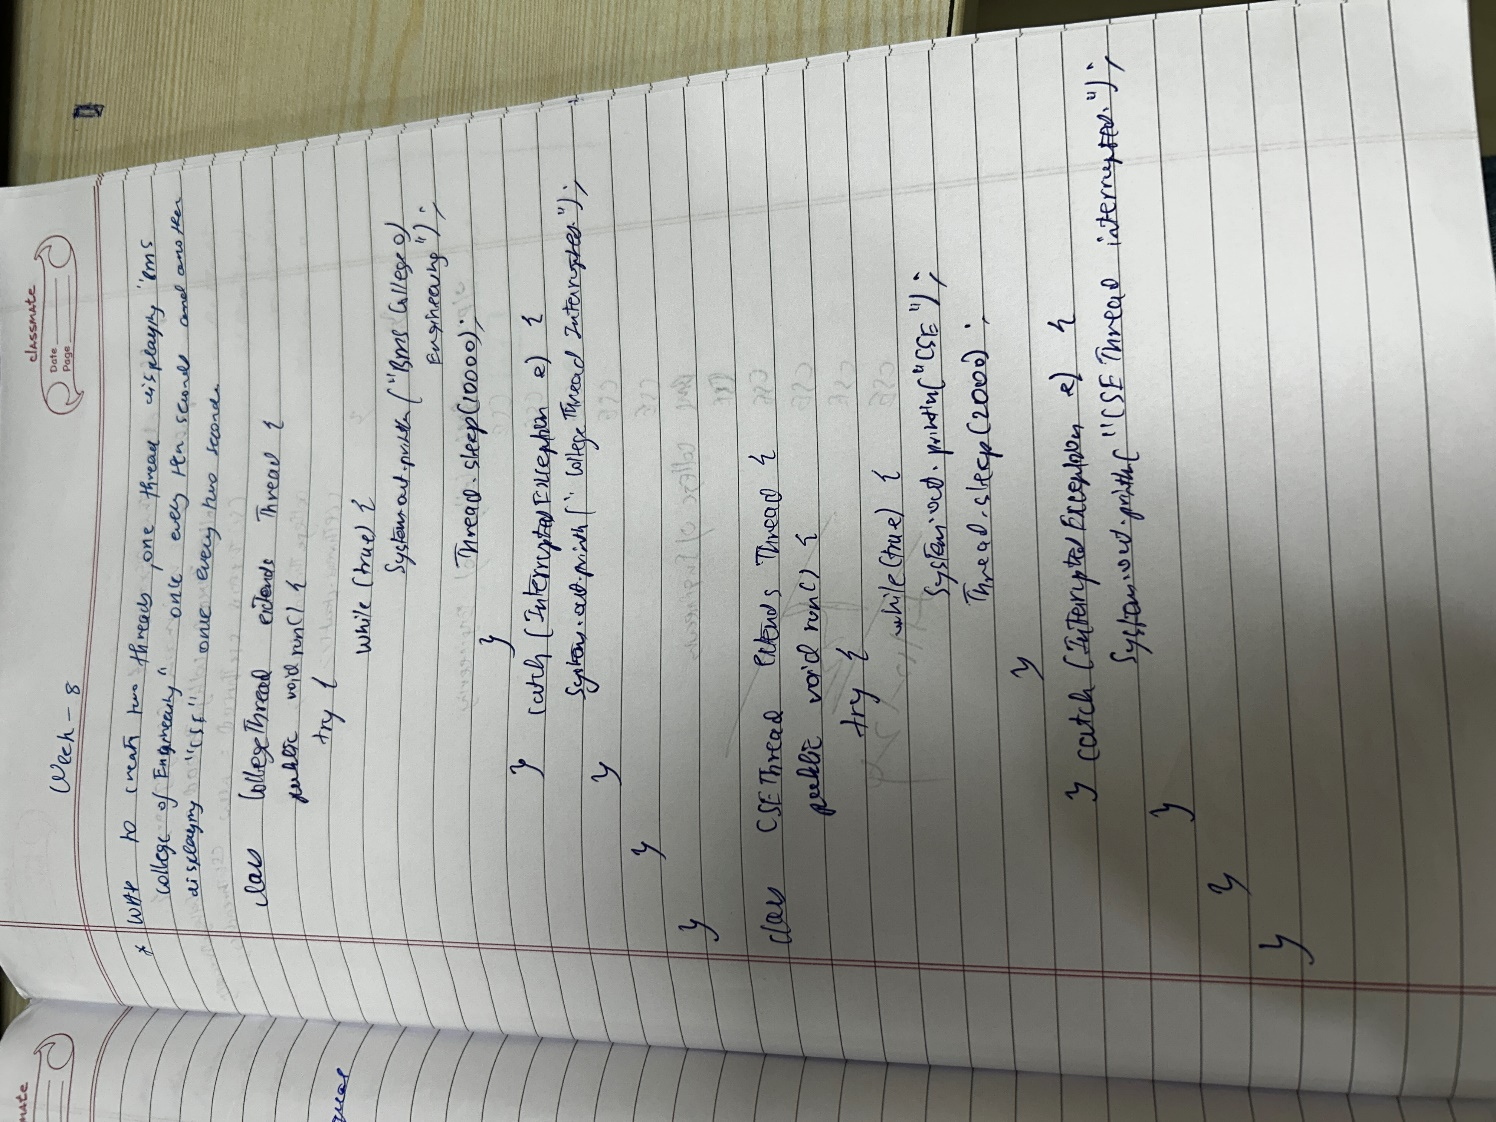 classmate
Date
Page
Week - 8
* WAP to create two threads, one thread displaying "BMS
College of Engineering" once every ten seconds and another
displaying "CSE" once every two seconds
class CollegeThread extends Thread {
public void run() {
try {
while (true) {
System.out.println("BMS College of
Engineering");
Thread.sleep(10000);
}
} catch (InterruptedException e) {
System.out.println("College Thread Interrupted");
}
}
}
class CSEThread extends Thread {
public void run() {
try {
while(true) {
System.out.println("CSE");
Thread.sleep(2000);
}
} catch (InterruptedException e) {
System.out.println("CSE Thread interrupted.");
}
}
}